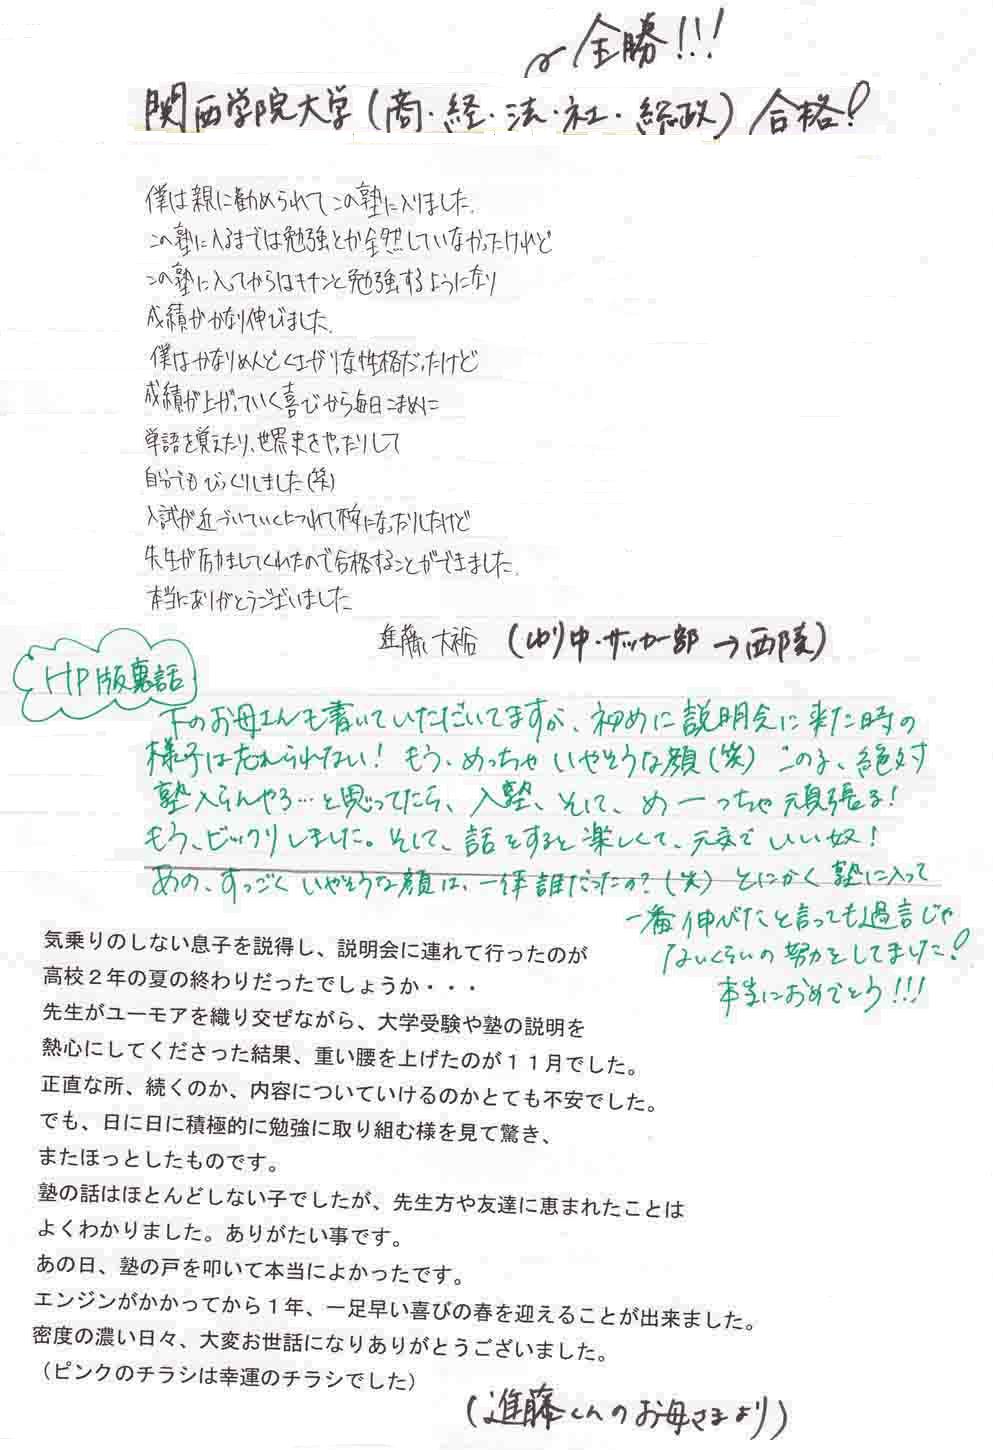 全勝!!!
関西学院大学(商・経・法・社・総政)合格!
僕は親に勧められてこの塾に入りました。
この塾に入るまでは勉強とか全然していなかったけれど
この塾に入ってからはキチンと勉強するようになり
成績がかなり伸びました。
僕はかなりめんどくさがりな性格だったけど
成績が上がっていく喜びから毎日こまめに
単語を覚えたり、世界史をやったりして
自分でもびっくりしました(笑)
入試が近づいていくにつれて不安になったりしたけど
先生が励ましてくれたので合格することができました。
本当にありがとうございました
進藤 大裕 (ゆり中・サッカー部→西陵)
HP版裏話
下のお母さんも書いていただいてますが、初めに説明会に来た時の
様子は忘れられない!もう、めっちゃいやそうな顔(笑)この子、絶対
塾入らんやろ…と思ってたら、入塾、そして、めーっちゃ頑張る!
もう、ビックリしました。そして、話をすると楽しくて、元気でいい奴!
あの、すっごくいやそうな顔は、一体誰だったの?(笑)とにかく塾に入って
一番伸びたと言っても過言じゃ
ないくらいの努力をしてました!
本当におめでとう!!!
気乗りのしない息子を説得し、説明会に連れて行ったのが
高校2年の夏の終わりだったでしょうか・・・
先生がユーモアを織り交ぜながら、大学受験や塾の説明を
熱心にしてくださった結果、重い腰を上げたのが11月でした。
正直な所、続くのか、内容についていけるのかとても不安でした。
でも、日に日に積極的に勉強に取り組む様を見て驚き、
またほっとしたものです。
塾の話はほとんどしない子でしたが、先生方や友達に恵まれたことは
よくわかりました。ありがたい事です。
あの日、塾の戸を叩いて本当によかったです。
エンジンがかかってから1年、一足早い喜びの春を迎えることが出来ました。
密度の濃い日々、大変お世話になりありがとうございました。
(ピンクのチラシは幸運のチラシでした)
(進藤くんのお母さまより)